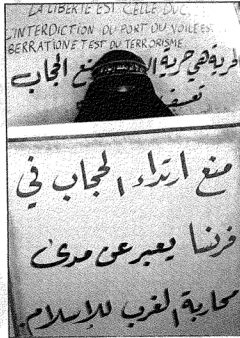 LA LIBERTE EST CELLE DUC
L'INTERDICTION DU PORT DU VOILE ES
BERRATION E T EST DU TERRORISME
الحرية هي حرية
منع الحجاب
تعسف
منع ارتداء الحجاب في
فرنسا يعبر عن مدى
محاربة الغرب للإسلام.